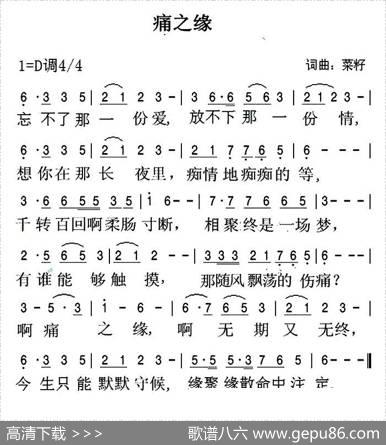 痛之缘
1=D调4/4 词曲：菜籽
6 ·3 3 5 | 2 1 2 3 - | 3 6·6 5 6 3 | 2 1 2 3 - |
忘 不了那 一 份爱, 放不下那 一 份 情,
6 ·3 3 5 | 2 1 2 3 - | 2 1 7 6 5 | 6 - - |
想你在那长 夜里, 痴情地痴痴的 等,
3 ·6 6 5 5 | 3 5 3 5 | i - | 6 - - | 7 · 7 6 5 | 3 - - |
千转百回啊柔肠 寸断, 相聚终是一场梦,
2 · 5 6 5 | 3 2 1 2 - | 3 3 3 2 1 7 6 5 | 6 - - |
有谁能 够触 摸, 那随风飘荡的 伤痛？
3 - 5 · 3 | i - 6 - | 7 - 6 · 5 | 3 - 3 - |
啊 痛 之 缘, 啊 无 期 又 无终,
6 · 3 3 5 | 2 1 2 3 - | 5 3·5 7 6 5 | 6 - - ‖
今 生只能 默默守候, 缘聚缘散命中注 定.
高清下载 >>> 歌谱八六 www.gepu86.com